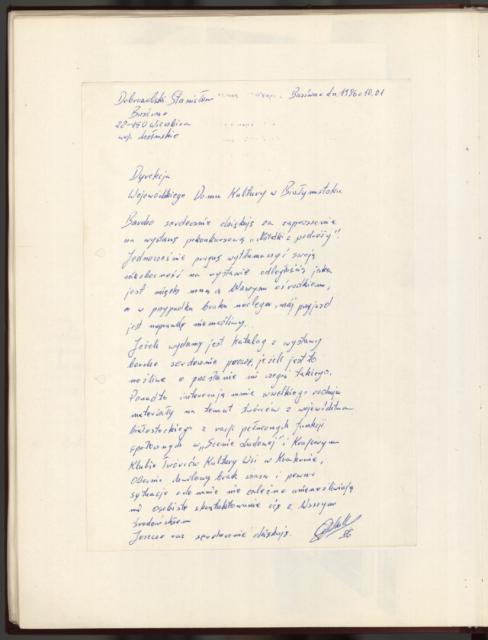 Dobrowolski Stanisław Busówno dn. 1986.10.01
Busówno
22-150 Wierzbica
woj. chełmskie
Dyrekcja
Wojewódzkiego Domu Kultury w Białymstoku
Bardzo serdecznie dziękuję za zaproszenie
na wystawę pokonkursową "
Jednocześnie proszę wytłumaczyć swoją
nieobecność na wystawie odległością jaka
jest między mną a Waszym ośrodkiem,
a w przypadku braku noclegu, mój przyjazd
jest naprawdę niemożliwy.
Jeżeli wydany jest katalog z wystawy
bardzo serdecznie proszę, jeżeli jest to
możliwe o przesłanie mi czegoś takiego.
Ponadto interesują mnie wszelkiego rodzaju
materiały na temat twórców z województwa
białostockiego z racji pełnionych funkcji
społecznych w "Scenie Ludowej" i Krajowym
Klubie Twórców Kultury Wsi w Krakowie,
Obecnie chwilowy brak czasu i pewne
sytuacje ode mnie nie zależne uniemożliwiają
mi osobiste skontaktowanie się z Waszym
środowiskiem
Jeszcze raz serdecznie dziękuję.